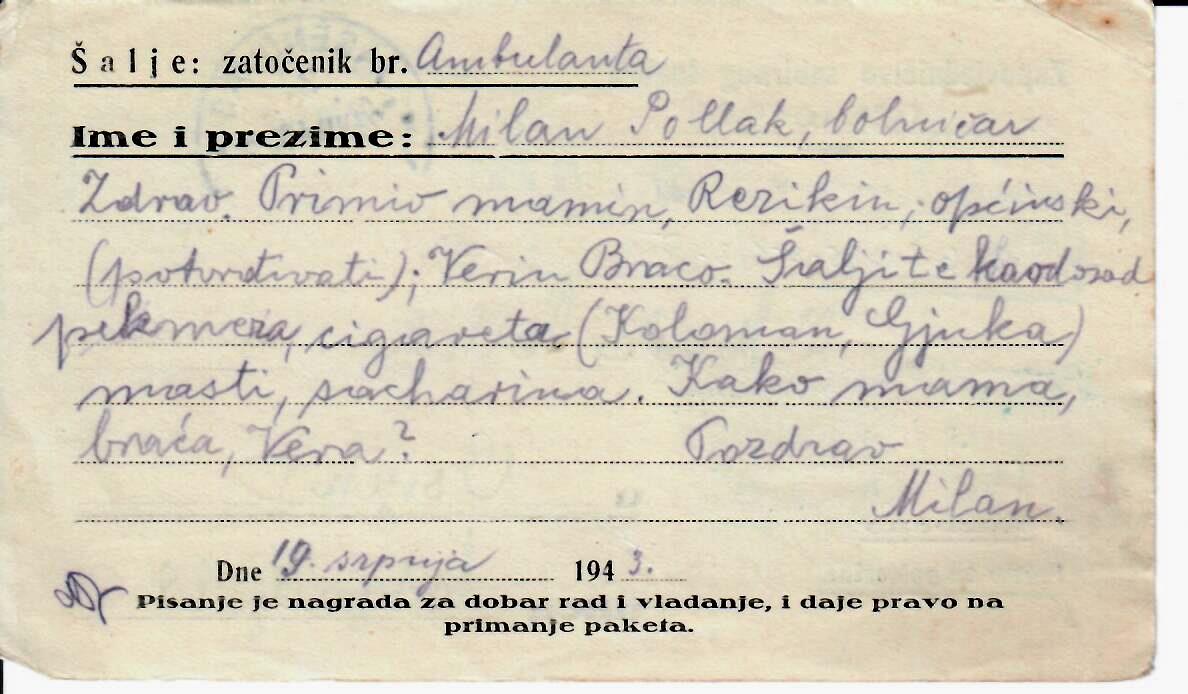 Šalje: zatočenik br. Ambulanta
Ime i prezime: Milan Pollak, bolničar
Zdrav. Primio mamin, Rezikin, općinski,
(potvrđivati); Verin Braco. Šaljite kao dosad
pekmeza, cigareta (Koloman, Gjuka)
masti, sacharina. Kako mama,
braća, Vera? Pozdrav
Milan.
Dne 19. srpnja 1943.
Pisanje je nagrada za dobar rad i vladanje, i daje pravo na
primanje paketa.